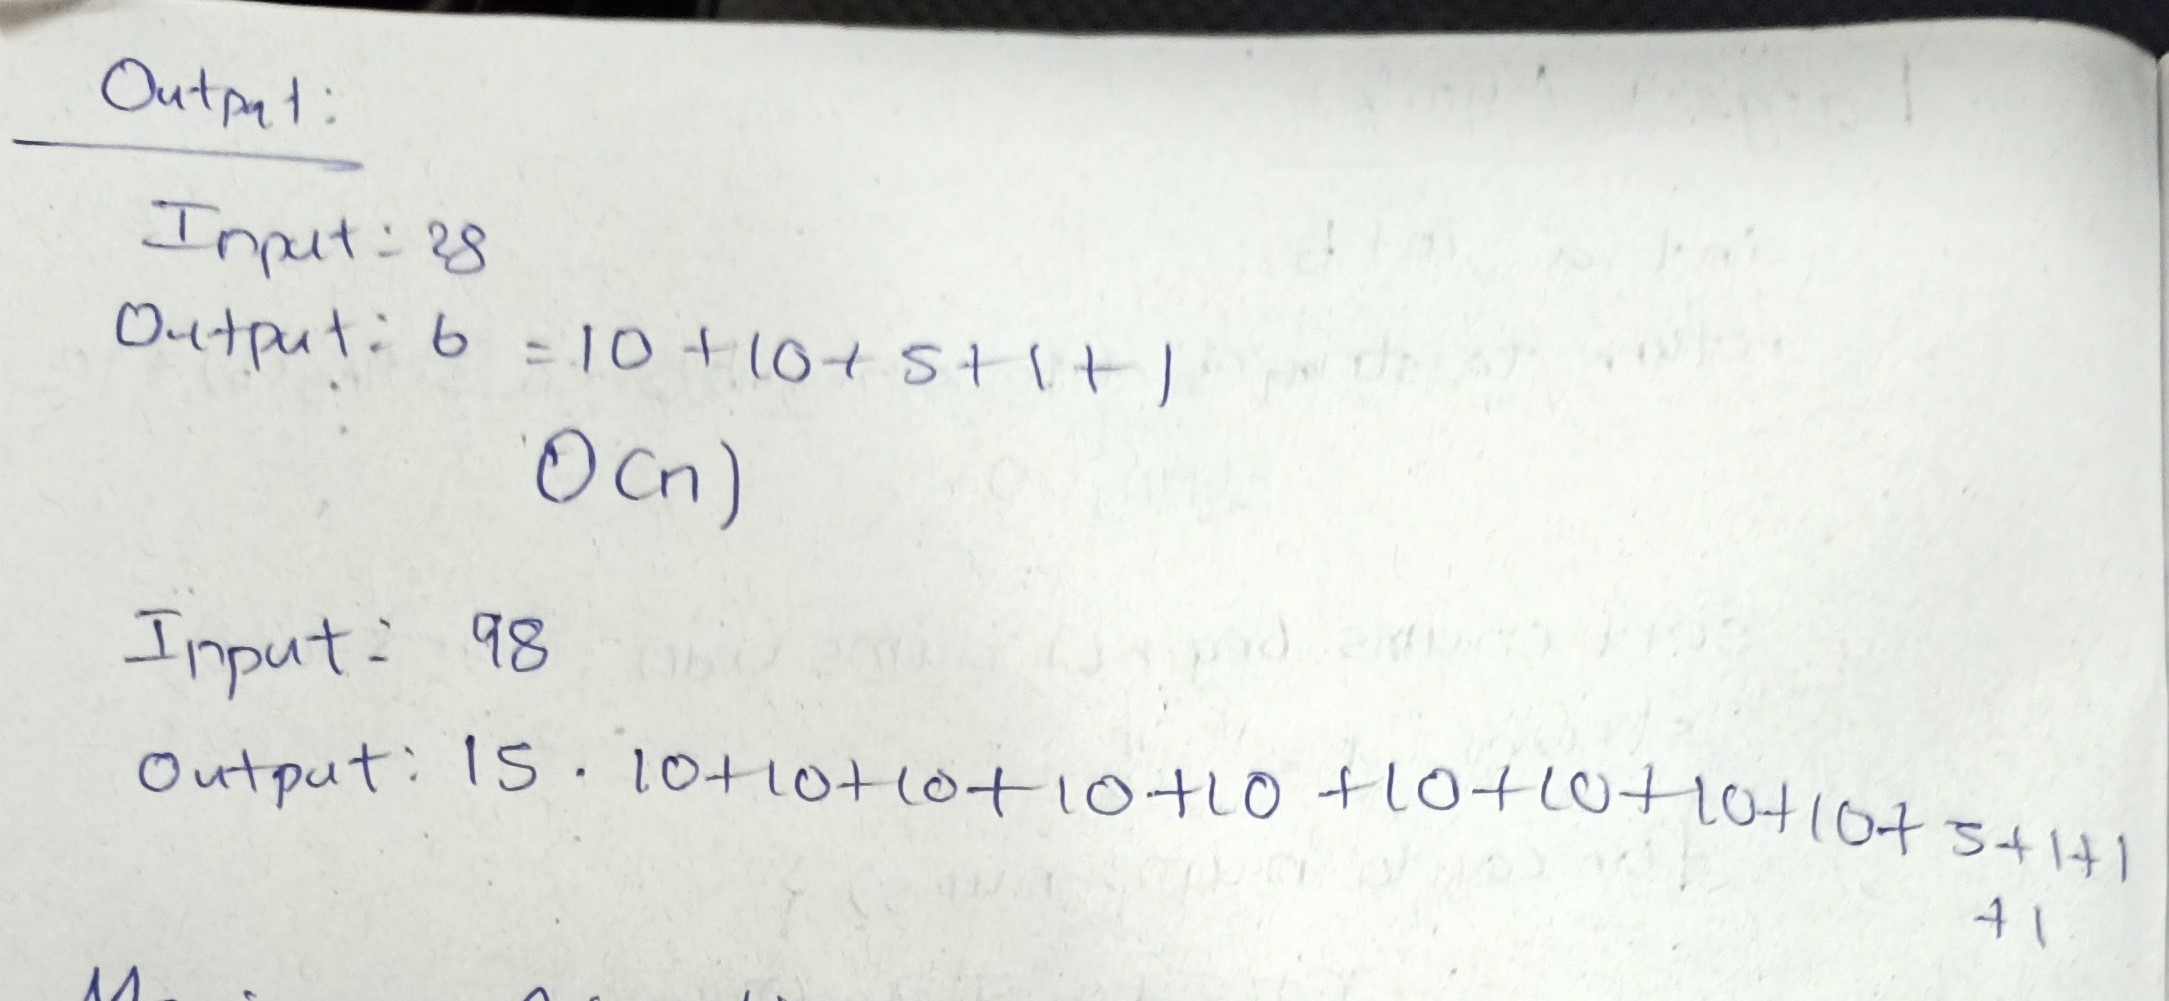 Output:
Input: 28
Output: 6 = 10 + 10 + 5 + 1 + 1
O(n)
Input: 98
Output: 15. 10+10+10+10+10+10+10+10+10+5+1+1
+1